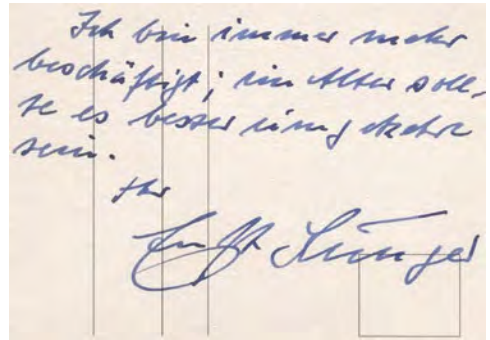 Ich bin immer mehr
beschäftigt; im Alter soll-
te es besser umgekehrt
sein.
Ihr
Ernst Jünger